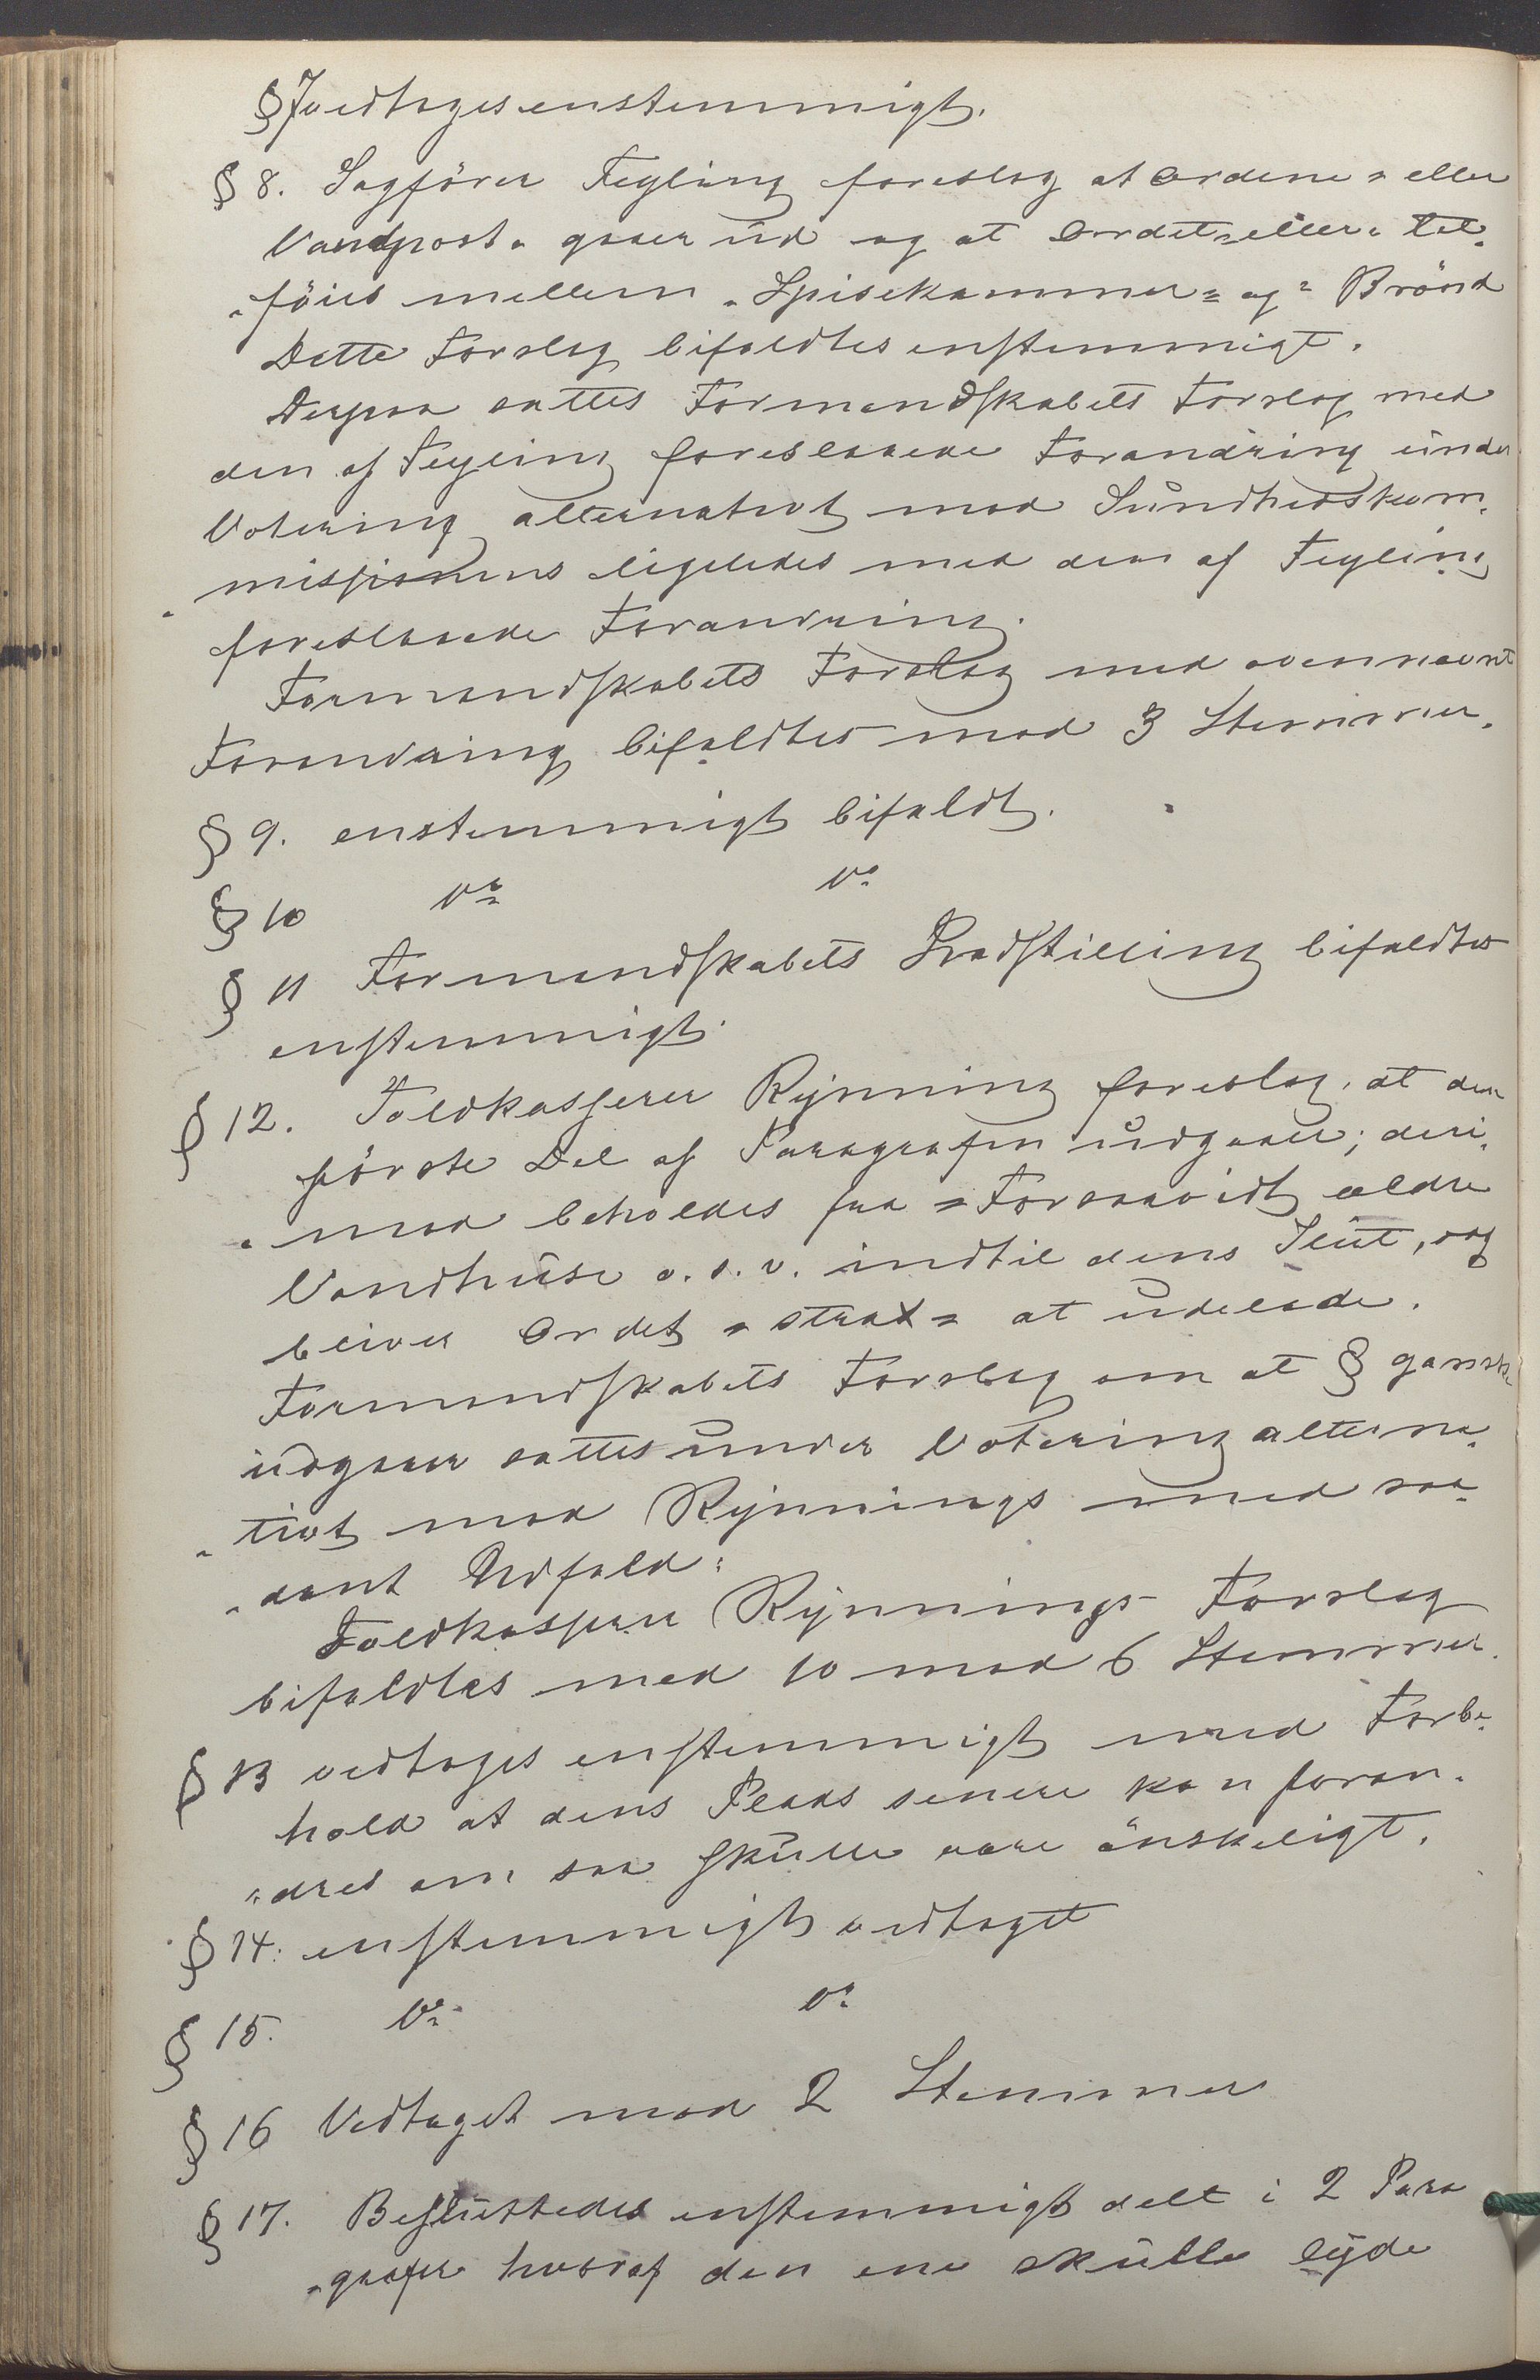 § 7 vedtoges enstemmigt.
§ 8. Sagfører Feyling foreslog at Ordene "eller
Vandpost" gaaer ud og at Ordet "eller" til,
"föies mellem "Spisekammer" og "Brönd
Dette Forslag bifaldtes enstemmigt.
Derpaa sattes Formandskabets Forslag med
den af Feyling foreslaaede Forandring under
Votering alternativt mod Sundhedskom,
"missionens ligeledes med den af Feyling
foreslaaede Forandring.
Formandskabets Forslag med ovennævnt
Forandring bifaldtes mod 3 Stemmer.
§ 9. enstemmigt bifaldt.
§ 10 Do Do
§ 11 Formandskabets Indstilling bifaldtes
enstemmigt.
§ 12. Toldkasserer Rynning foreslog, at den
förste Del af Paragrafen udgaaer; deri,
"mod beholdes fra "Forsaavidt ældre
Vandhuse o. s. v. indtil dens Slut, og
bliver Ordet "strax" at udelade.
Formandskabets Forslag om at § ganske
udgaaer sattes under Votering alterna,
"tivt mod Rynnings med saa,
"dant Udfald:
Toldkasserer Rynnings Forslag
bifaldtes med 10 mod 6 Stemmer.
§ 13 vedtoges enstemmigt med Forbe,
hold at dens Plads senere kan foran,
"dres om saa skulle være önskeligt.
§ 14. enstemmigt vedtaget
§ 15. Do Do
§ 16 Vedtaget mod 2 Stemmer
§ 17. Besluttedes enstemmigt delt i 2 Para
"grafer hvoraf den ene skulle lyde